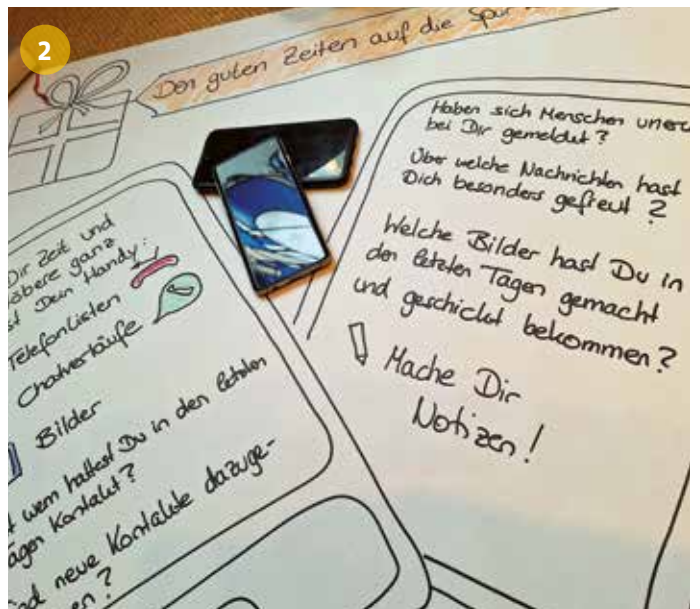 2
Den guten Zeiten auf die Spur
Dir Zeit und
öbere ganz
st Dein Handy:
Telefonlisten
Chatverläufe
Bilder
t wem hattest Du in den letzten
agen Kontakt?
nd neue Kontakte dazuge-
en?
Haben sich Menschen unerw
bei Dir gemeldet?
Über welche Nachrichten hast
Dich besonders gefreut?
Welche Bilder hast Du in
den letzten Tagen gemacht
und geschickt bekommen?
Mache Dir
Notizen!